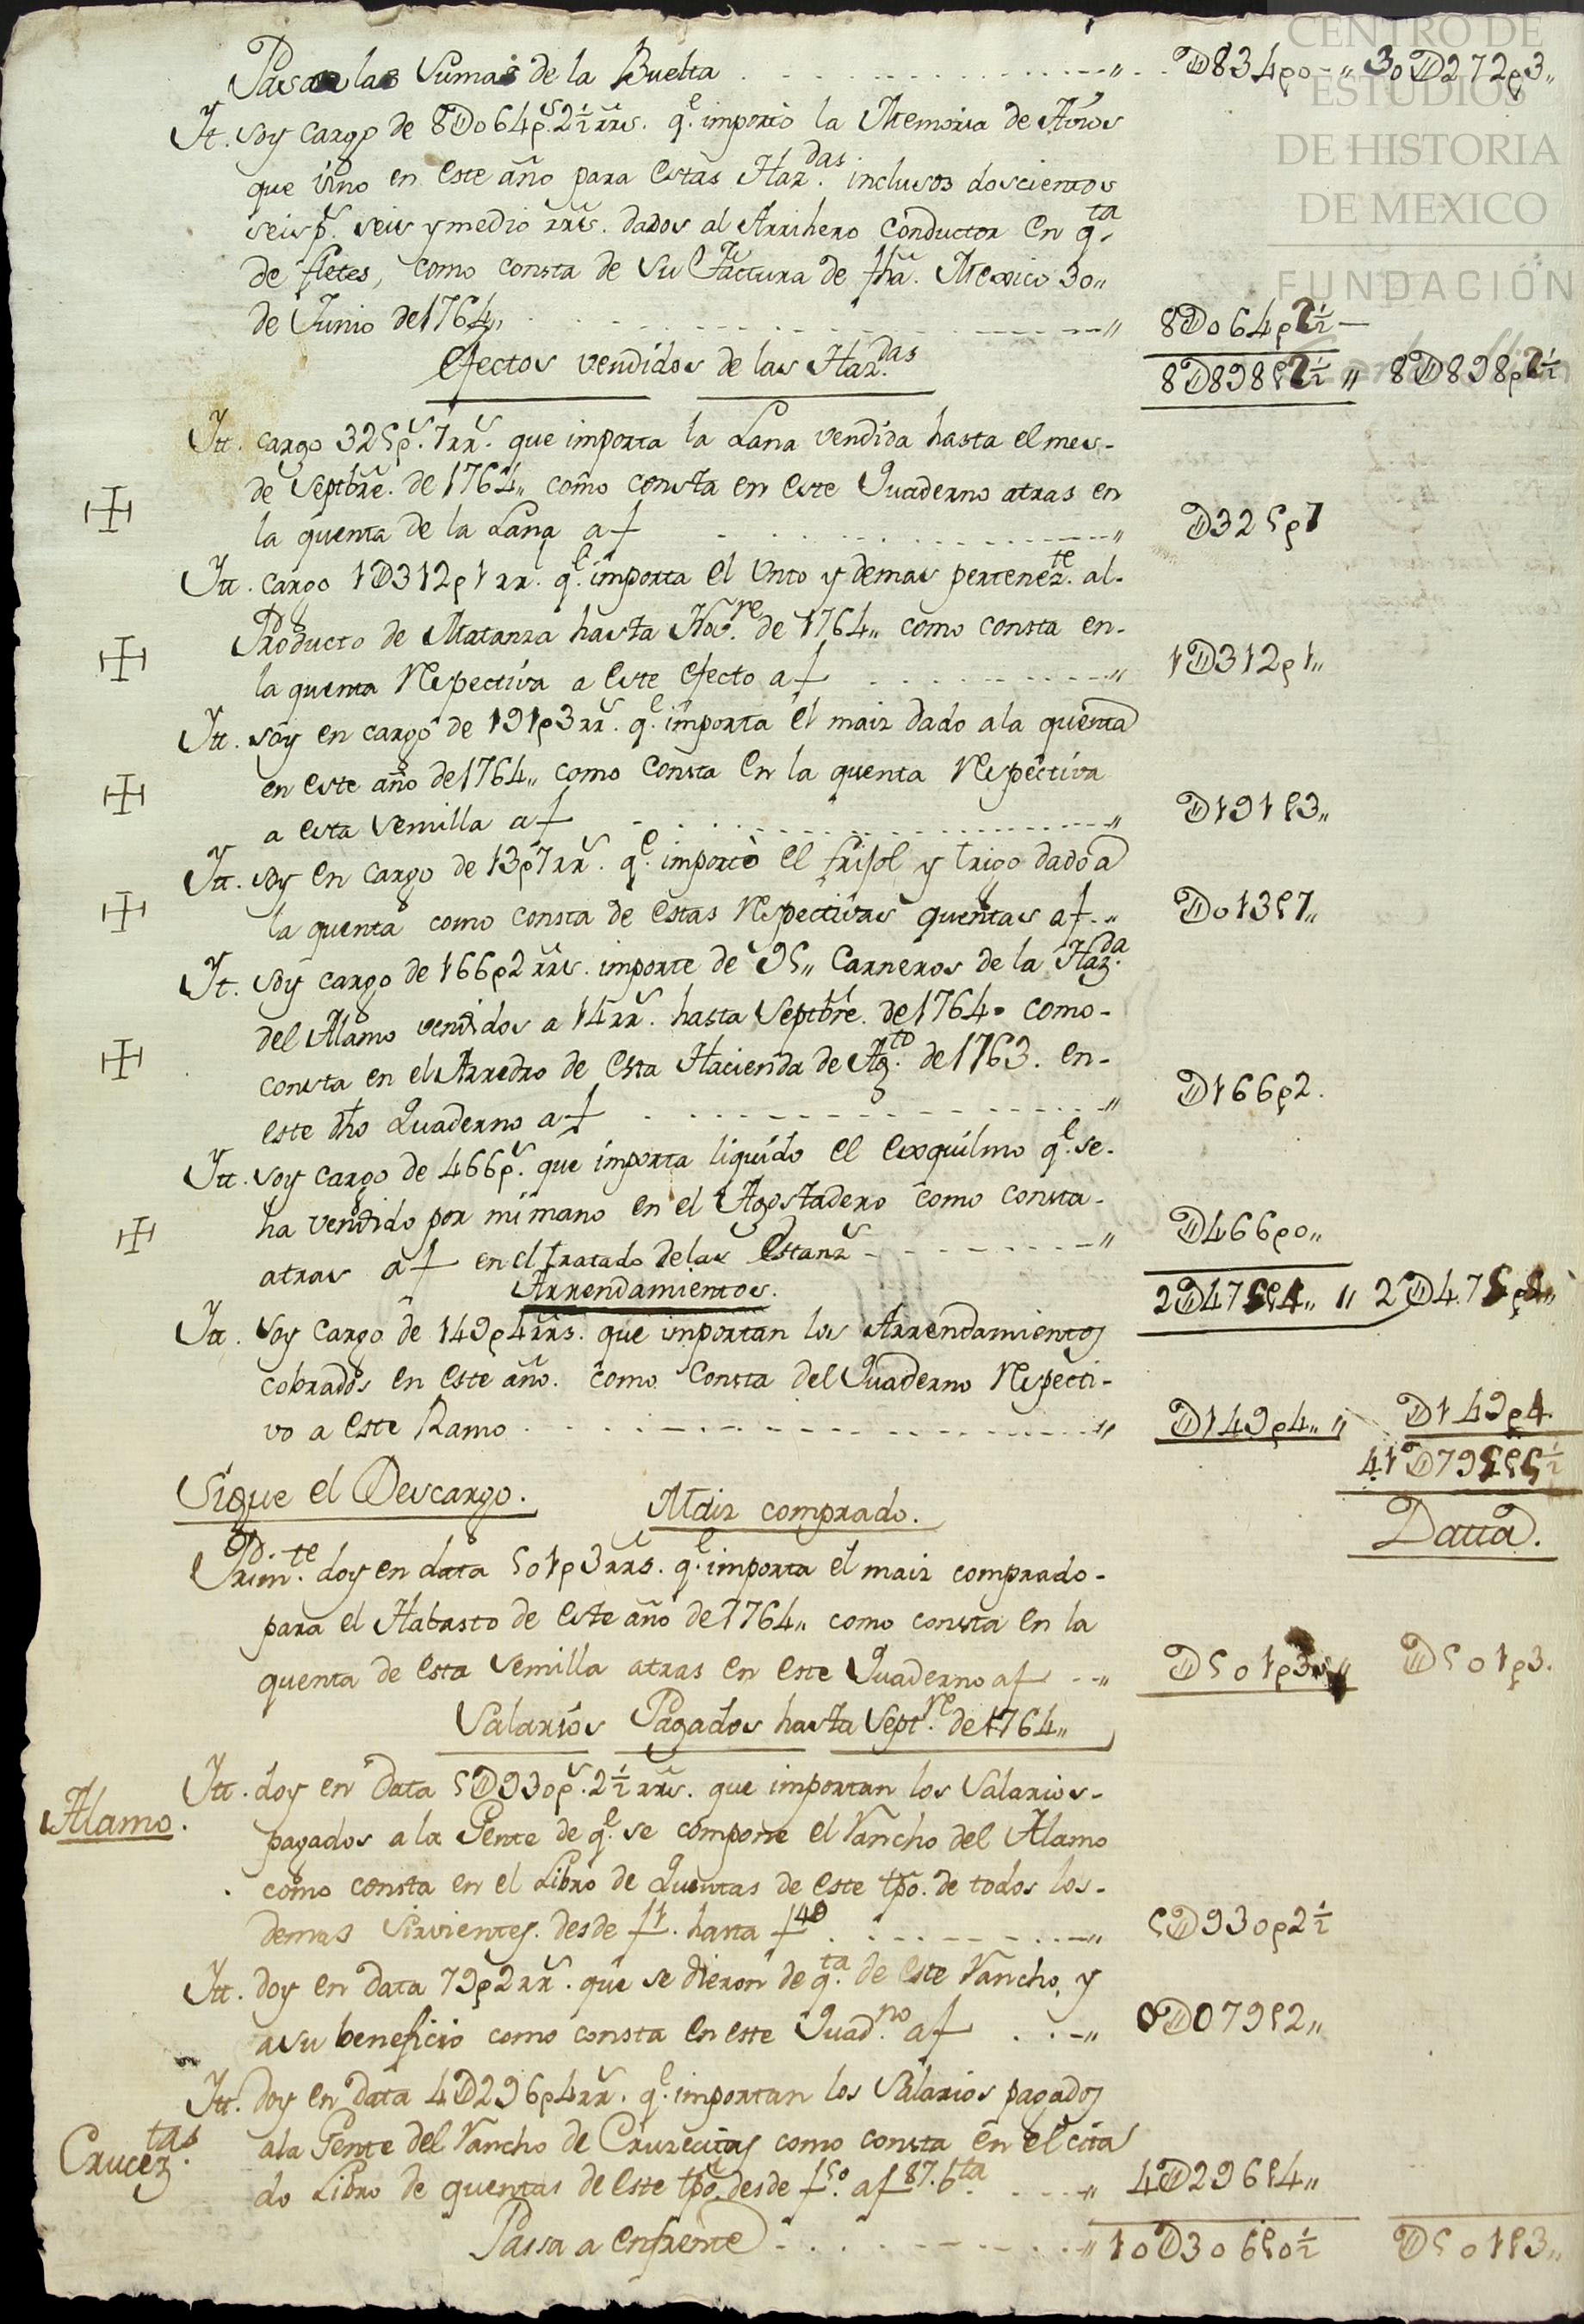 CENTRO DE
ESTUDIOS
DE HISTORIA
DE MEXICO
FUNDACIÓN
Pasan las Sumas de la Buelta . . . . . " . . D834p0 " 30D272p3"
It. soy cargo de 8D064ps. 2½ rrs. qe. importò la Memoria de Avios
que vino en este año para estas Hazdas. inclusos doscientos
seis ps. seis y medio rrs. dados al Arrihero Conductor en qta
de fletes, como consta de su Factura de fha. Mexico 30"
de Junio de 1764" . . . . . " 8D064p2½
Efectos vendidos de las Hazdas 8D898p2½ " 8D898p2½
Itt. cargo 325ps. 7rrs. que importa la Lana vendida hasta el mes-
de Septbre. de 1764" como consta en este Quaderno atras en
la quenta de la Lana a f . . . . . " D325p7
Itt. cargo 1D312p1rr. qe. importa el Unto y demas perteneztte. al-
Producto de Matanza hasta Nore. de 1764" como consta en-
la quenta Respectiva a este efecto a f . . . . . " 1D312p1"
Itt. soy en cargo de 191p3rrs. qe. importa el maiz dado a la quenta
en este año de 1764" como consta en la quenta Respectiva
a esta Semilla a f . . . . . " D191p3"
Itt. soy en cargo de 13p7rrs. qe. importò el frisol y trigo dado a
la quenta como consta de estas Respectivas quentas a f. " D013p7"
It. soy cargo de 166p2rrs. importe de 95" Carneros de la Hazda.
del Alamo vendidos a 14rrs. hasta Septbre. de 1764. como-
consta en el Arredro de esta Hacienda de Agto. de 1763. en-
este dho Quaderno a f . . . . . " D166p2.
Itt. soy cargo de 466ps. que importa liquido el esquilmo qe. se-
ha vendido por mi mano en el Agostadero como consta-
atras a f en el tratado de las Estanzs . . . . . " D466p0"
Arrendamientos. 2D475p4" " 2D475p4"
Itt. soy cargo de 149p4rrs. que importan los Arrendamientos
cobrados en este año. como consta del Quaderno Respecti-
vo a este Ramo . . . . . " D149p4" " D149p4.
41D795p5½
Sigue el Descargo. Maiz comprado. Datta.
Primte. doy en data 501p3rrs. qe. importa el maiz comprado-
para el Habasto de este año de 1764" como consta en la
quenta de esta Semilla atras en este Quaderno a f - - " D501p3" D501p3.
Salarios Pagados hasta Septre. de 1764"
Alamo. Itt. doy en Data 5D930ps. 2½ rrs. que importan los Salarios-
pagados a la Gente de qe. se compone el Rancho del Alamo
como consta en el Libro de Quentas de este tpo. de todos los-
demas Sirvientes. desde f1. hasta f49 . . . . . " 5D930p2½
Itt. doy en data 79p2rrs. que se dieron de qta. de este Rancho, y
a su beneficio como consta en este Quadno. a f . . . " 0D079p2"
Itt. doy en data 4D296p4rrs. qe. importan los Salarios pagados
Cruceztas. a la Gente del Rancho de Cruzecitas como consta en el cita
do Libro de quentas de este tpo. desde f50. a f87. bta. . . . " 4D296p4"
Passa a enfrente . . . . . " 10D306p0½ D501p3"